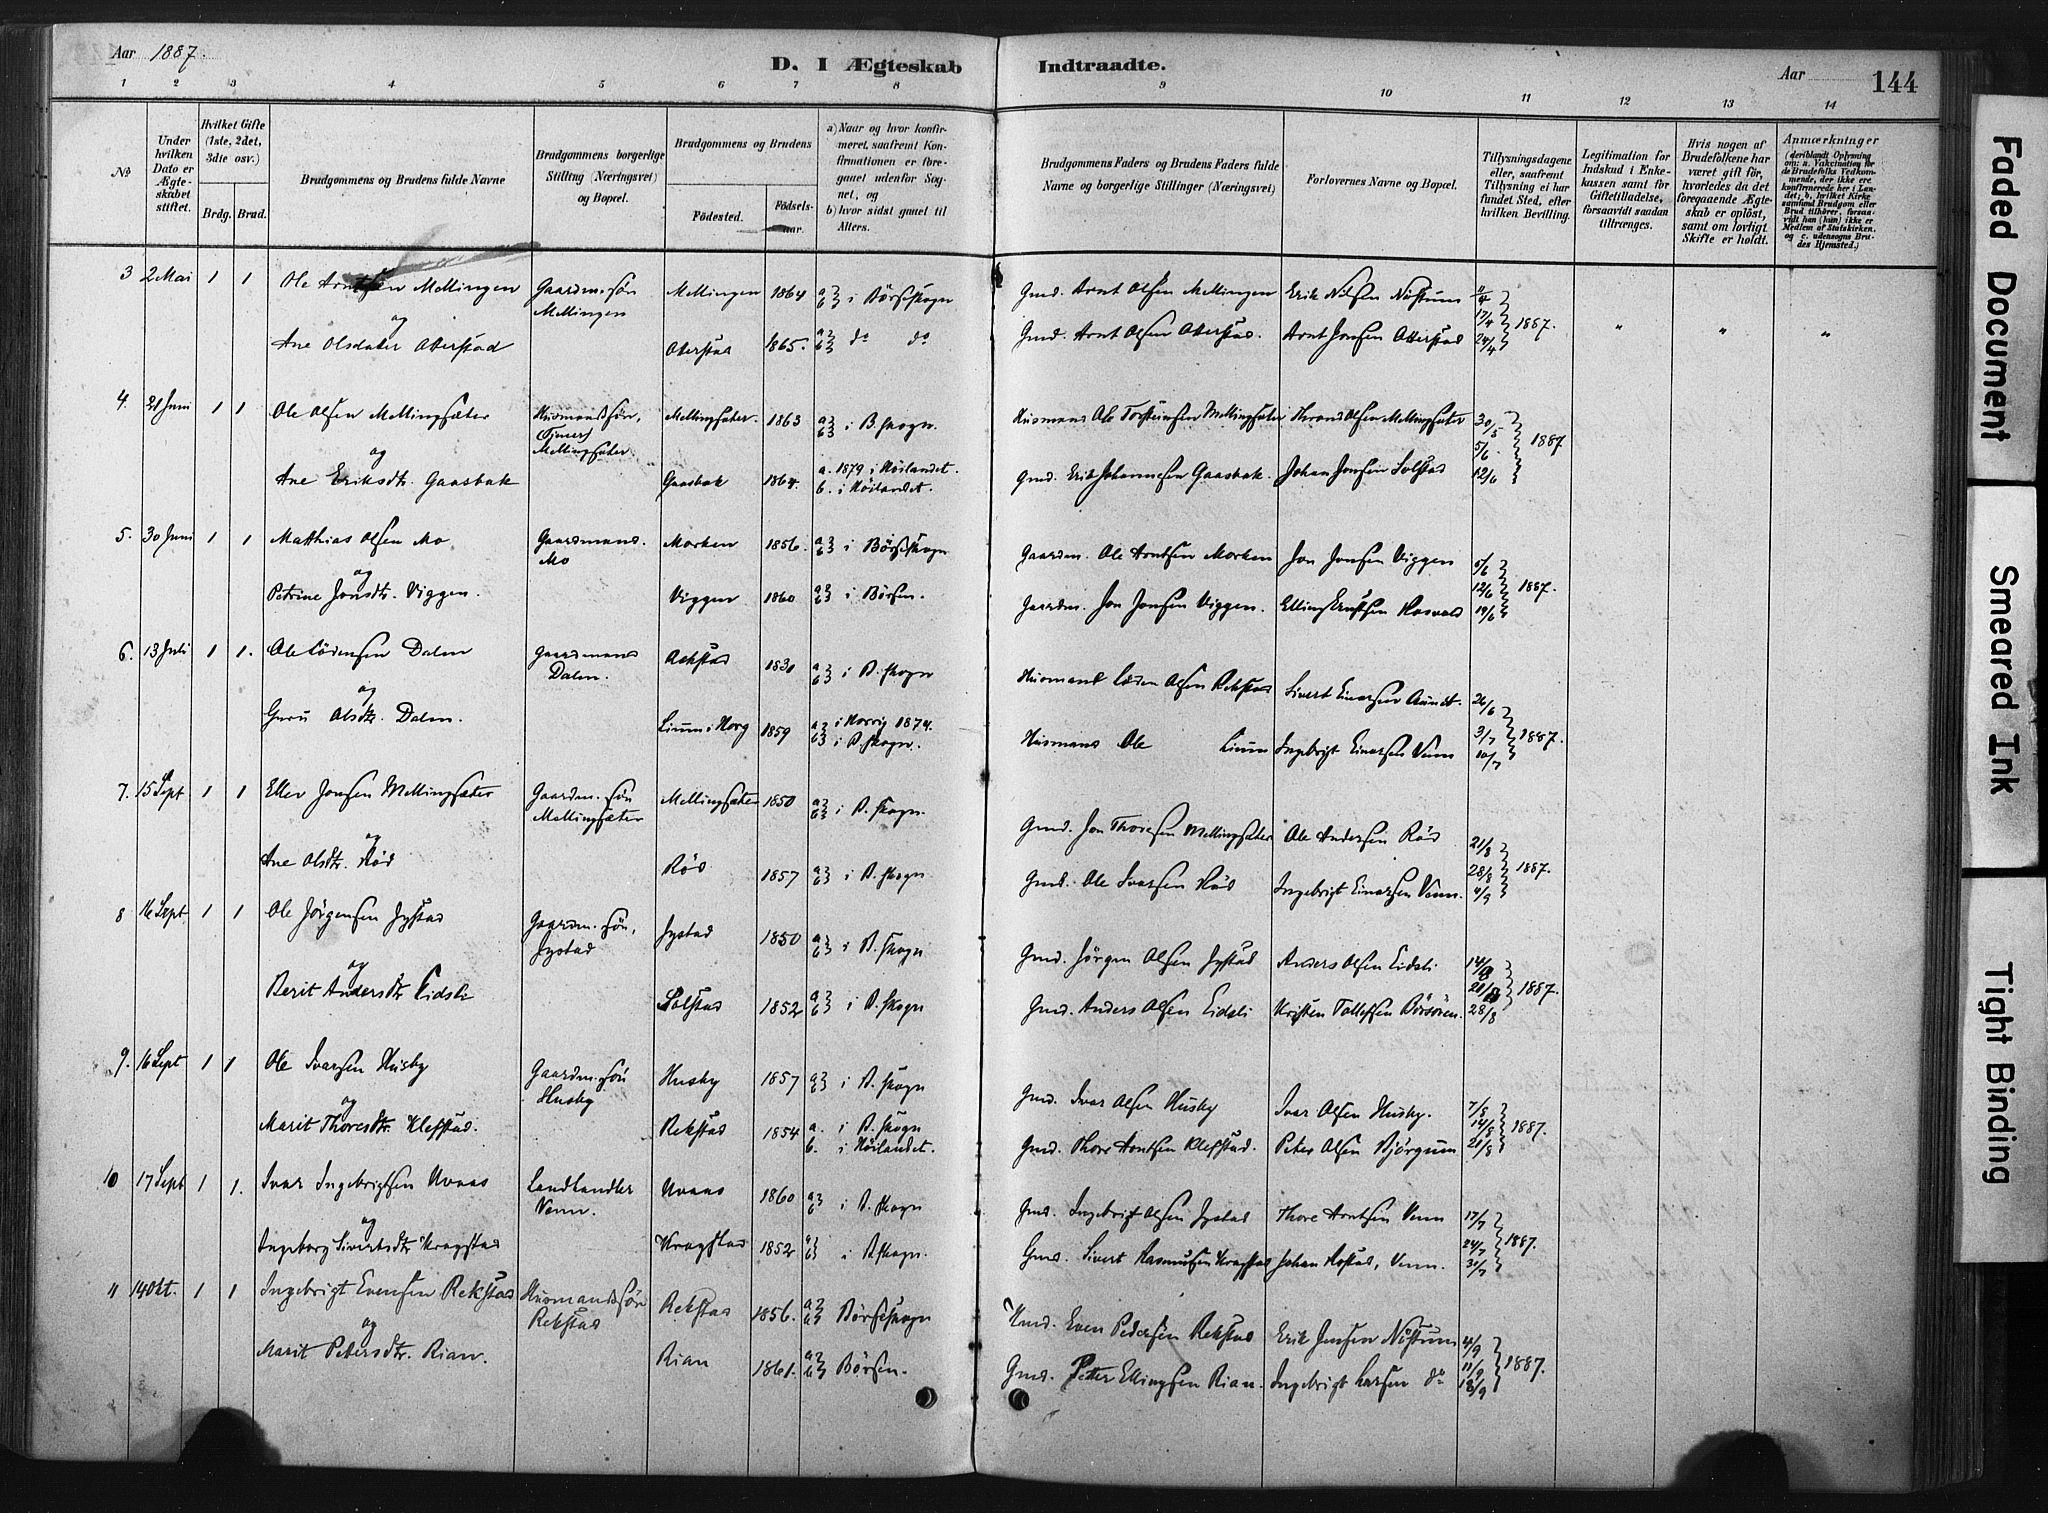 Aar 1887.
D. I Ægteskab Indtraadte.
Aar 144
1 2 3 4 5 6 7 8 9 10 11 12 13 14
No
Under hvilken Dato er Ægteskabet stiftet.
Hvilket Gifte (1ste, 2det, 3die osv.)
Brdg. Brud.
Brudgommens og Brudens fulde Navne
Brudgommens borgerlige Stilling (Næringsvei) og Bopæl.
Brudgommens og Brudens
Fødested. Fødselsaar.
a) Naar og hvor konfirmeret, saafremt Konfirmationen er foregaaet udenfor Sognet, og
b) hvor sidst gaaet til Alters.
Brudgommens Faders og Brudens Faders fulde Navne og borgerlige Stillinger (Næringsvei)
Forlovernes Navne og Bopæl.
Tillysningsdagene eller, saafremt Tillysning ei har fundet Sted, efter hvilken Bevilling.
Legitimation for Indskud i Enkekassen samt for Giftetilladelse, forsaavidt saadan tiltrænges.
Hvis nogen af Brudefolkene har været gift før, hvorledes da det foregaaende Ægteskab er opløst, samt om lovligt Skifte er holdt.
Anmærkninger
(deriblandt Oplysning om: a. Vaksination for de Brudefolks Vedkommende, der ikke ere konfirmerede her i Landet; b. hvilket Kirkesamfund Brudgom eller Brud tilhører, forsaavidt han (hun) ikke er Medlem af Statskirken, og c. udensogns Brudes Hjemsted.)
3 2 Mai 1 1 Ole Arntsen Mellingen Gaardm. søn Mellingen Mellingen 1864 a} b} i Børseskogn Gmd. Arnt Olsen Mellingen Erik Nilsen Nøstum 11/4 17/4 24/4 1887. " " "
og
Ane Olsdater Aterstad Oterstad 1865. a} b} do do Gmd. Arnt Olsen Oterstad. Arnt Jonsen Otterstad
4. 21 Juni 1 1 Ole Olsen Mellingsæter Husmandssøn, (Tjener) Mellingsæter Mellingsæter. 1863 a} b} i B.skogn. Husmand Ole Torsteinsen Mellingsæter Thrond Olsen Mellingsæter 30/5 5/6 12/6 1887
og
Ane Eriksdtr. Gaasbak Gaasbak 1864. a. 1879 i Høilandet. b. i Høilandet. Gmd. Erik Johannesen Gaasbak. Johan Jonsen Solstad
5. 30 Juni 1 1 Matthias Olsen Mo Gaardmand. Mo Morken 1856. a} b} i Børseskogn Gaardm. Ole Arntsen Morken Jon Jonsen Viggen 5/6 12/6 19/6 1887.
og
Petrine Jonsdtr. Viggen. Viggen 1860 a} b} i Børsen. Gaardm. Jon Jonsen Viggen. Elling Knutsen Hosvold
6. 13 Juli 1 1. Ole Lodensen Dalen Gaardmand Dalen. Rekstad 1830 a} b} i B.skogn Husmand Loden Olsen Rekstad Sivert Einarsen Aunet. 26/6 3/7 10/7 1887.
og
Guru Olsdtr. Dalen. Lium i Horg 1859 a} i Horrig 1874. b} i B.skogn. Husmand Ole Lium Ingebrigt Einarsen Venn
7. 15 Sept 1 1 Eller Jonsen Mellingsæter Gaardm. søn Mellingsæter Mellingsæter 1850 a} b} i B.skogn. Gmd. Jon Thoresen Mellingsæter Ole Andersen Rød 21/8 28/8 4/9 1887.
og
Ane Olsdtr. Rød Rød 1857 a} b} i B.skogn Gmd. Ole Ivarsen Rød Ingebrigt Einarsen Venn.
8 16 Sept 1 1 Ole Jørgensen Jystad Gaardm. søn, Jystad Jystad 1850 a} b} i B.skogn Gmd. Jørgen Olsen Jystad Anders Olsen Eidsli 14/8 21/8 28/8 1887.
og
Berit Andersdtr Eidsli Solstad 1852 a} b} i B.skogn Gmd. Anders Olsen Eidsli Kristen Tollefsen Børsøren.
9. 16 Sept 1 1 Ole Ivarsen Husby Gaardm. søn Husby Husby 1857 a} b} i B.skogn Gmd. Ivar Olsen Husby Ivar Olsen Husby. 7/8 14/8 21/8 1887.
og
Marit Thoresdtr. Klefstad. Rekstad 1854 a. i B.skogn b. i Høilandet. Gmd. Thore Arntsen Klefstad. Peter Olsen Bjørgum
10 17 Sept 1 1. Ivar Ingebrigtsen Uvaas Landhandler Venn. Uvaas 1860 a} b} i B.skogn Gmd. Ingebrigt Olsen Jystad Thore Arntsen Venn 17/7 24/7 31/7 1887.
og
Ingeborg Sivertsdtr Kragstad Kragstad 1852 a} b} i B.skogn. Gmd. Sivert Rasmussen Kragstad Johan Hofstad, Venn.
11 14 Okt. 1 1 Ingebrigt Evensen Rekstad Husmandssøn Rekstad Rekstad 1856. a} b} Børseskogn Hmd. Even Pedersen Rekstad Erik Jensen Nøstum 4/9 11/9 18/9 1887.
og
Marit Petersdtr. Rian. Rian 1861. a} b} Børsen. Gmd. Petter Ellingsen Rian. Ingebrigt Larsen do
Faded Document
Smeared Ink
Tight Binding